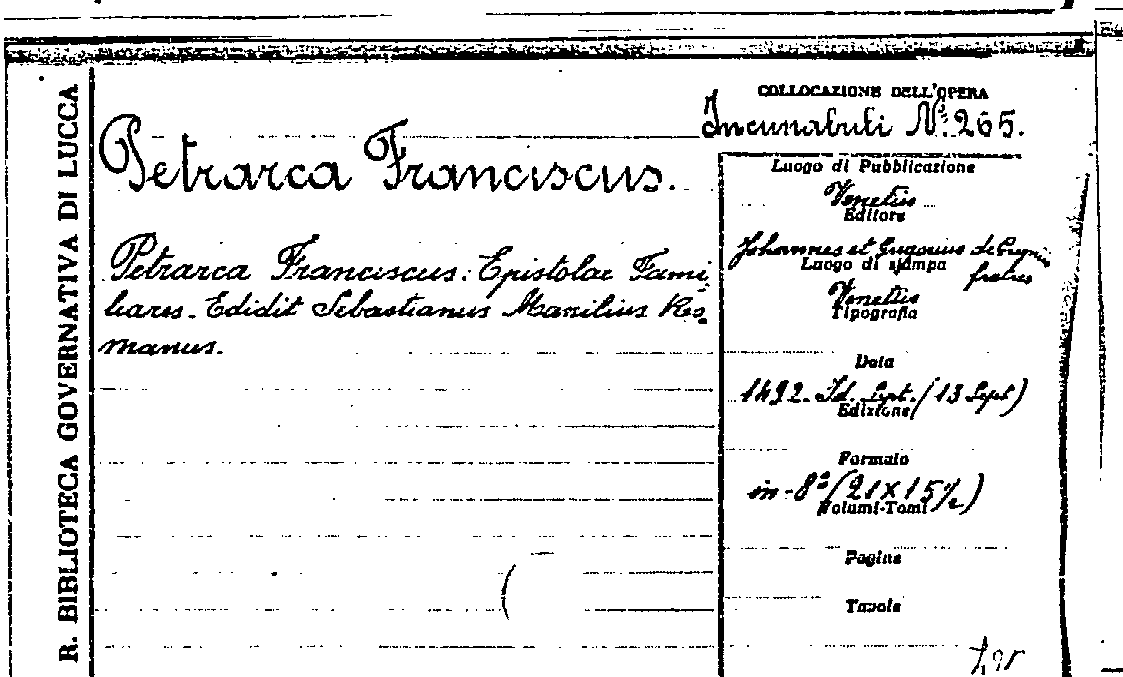 R. BIBLIOTECA GOVERNATIVA DI LUCCA
Petrarca Franciscus.
Petrarca Franciscus: Epistolae Fami-
liares. Edidit Sebastianus Manilius Ro-
manus.
COLLOCAZIONE DELL'OPERA
Incunabuli N.º 265.
Luogo di Pubblicazione
Venetiis
Editore
Johannes et Gregorius de
fratres
Luogo di stampa
Venetiis
Tipografia
Data
1492. Id. Sept. (13 Sept)
Edizione
Formato
in-8º (21 x 15½)
Volumi-Tomi
Pagine
Tavole